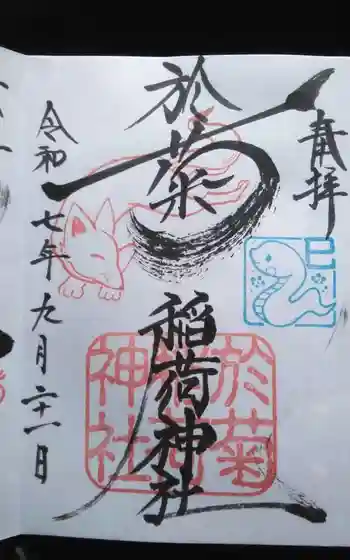 奉拝
巳
於菊
稲荷神社
於菊
稲荷
神社
令和七年九月二十一日